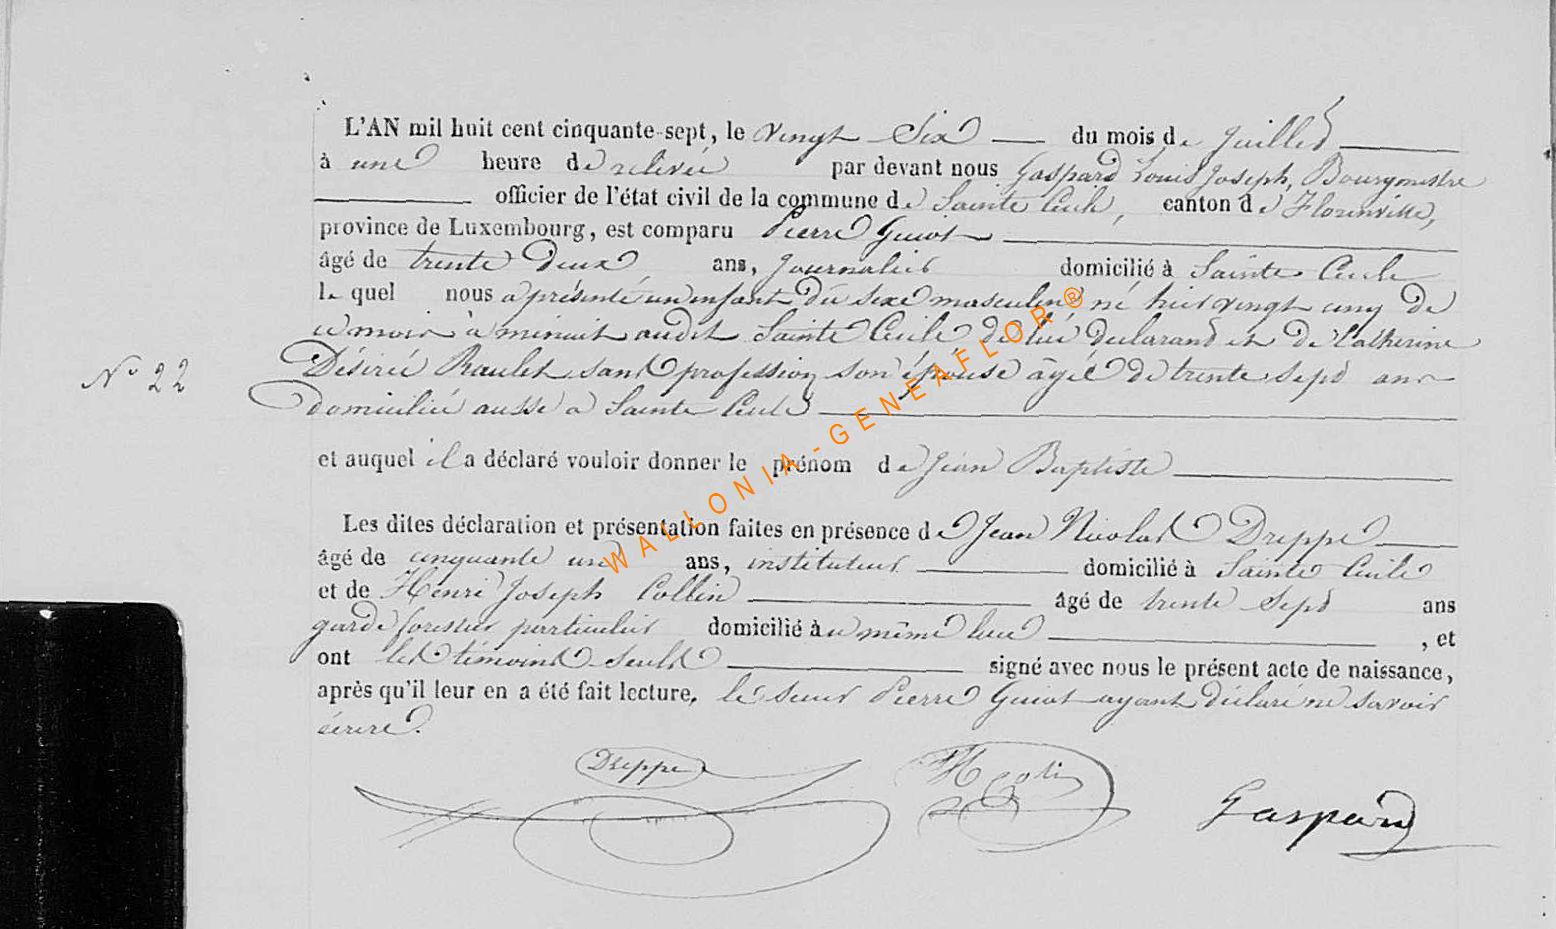 L'AN mil huit cent cinquante-sept, le vingt Six du mois de Juillet
à une heure de relevée par devant nous Gaspard Louis Joseph, Bourgmestre
officier de l'état civil de la commune de Sainte Cécile, canton de Florenville,
province de Luxembourg, est comparu Pierre Guiot
âgé de trente Deux ans, Journalier domicilié à Sainte Cécile
le quel nous a présenté un enfant du sexe masculin né hier vingt cinq de
ce mois à minuit audit Sainte Cécile de lui déclarant et de Catherine
N° 22
Désirée Raulet sans profession son épouse âgée de trente sept ans
domiciliée aussi à Sainte Cécile
et auquel il a déclaré vouloir donner le prénom de Jean Baptiste
Les dites déclaration et présentation faites en présence de Jean Nicolas Dreppe
âgé de cinquante un ans, instituteur domicilié à Sainte Cécile
et de Henri Joseph Collin âgé de trente Sept ans
garde forestier particulier domicilié au même lieu , et
ont les témoins seuls signé avec nous le présent acte de naissance,
après qu'il leur en a été fait lecture, le sieur Pierre Guiot ayant déclaré ne savoir
écrire.
Dreppe
Gaspard
WALLONIA-GENEAFLOR®